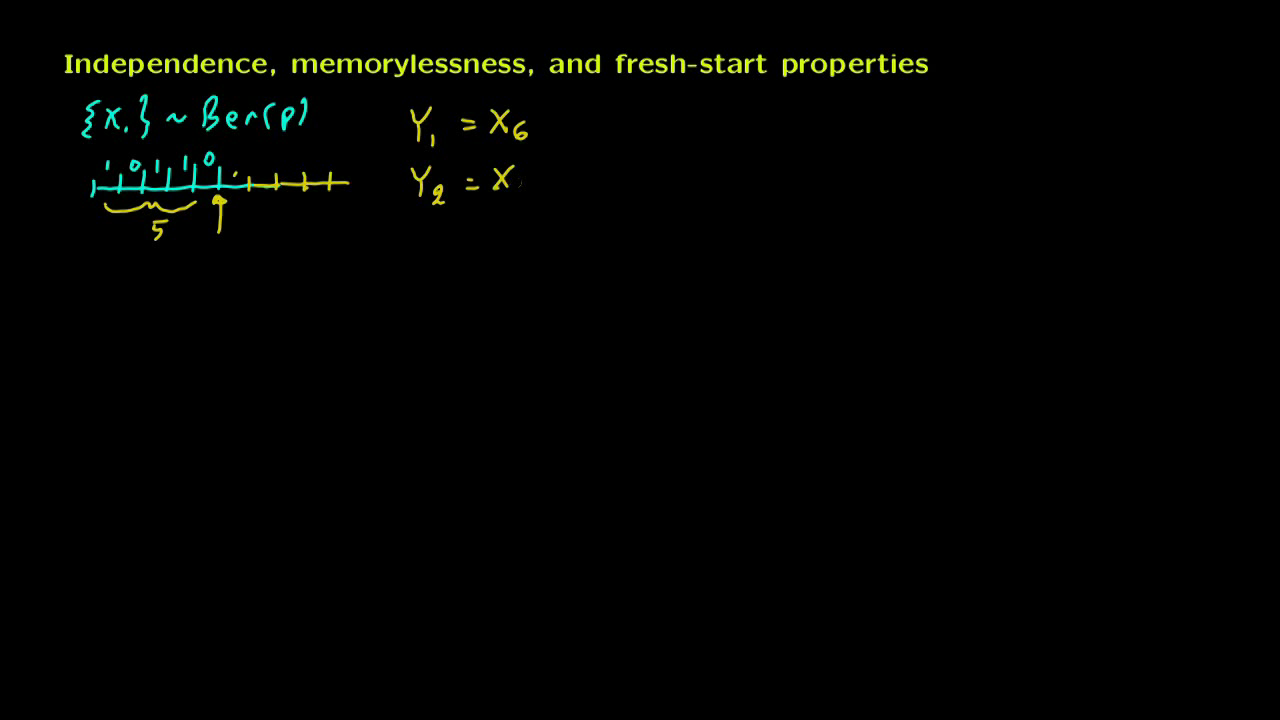 Independence, memorylessness, and fresh-start properties
{X.} ~ Ber(p)
1 0 1 1 0
5
Y₁ = X₆
Y₂ = X